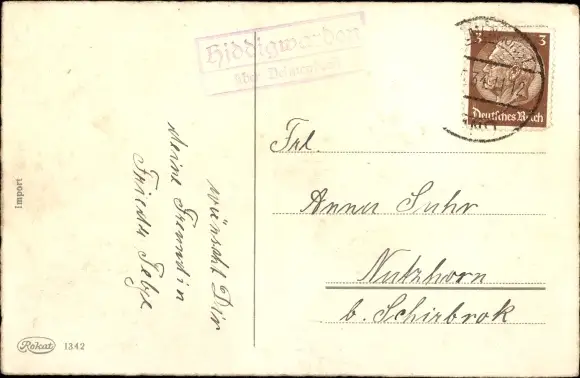 Hiddigwarden
über
3 3
Deutsches Reich
wünscht Dir
deine Freundin
Frieda
Frl.
Anna Suhr
Nutzhorn
b. Schirbrok
Import
Rokat 1342